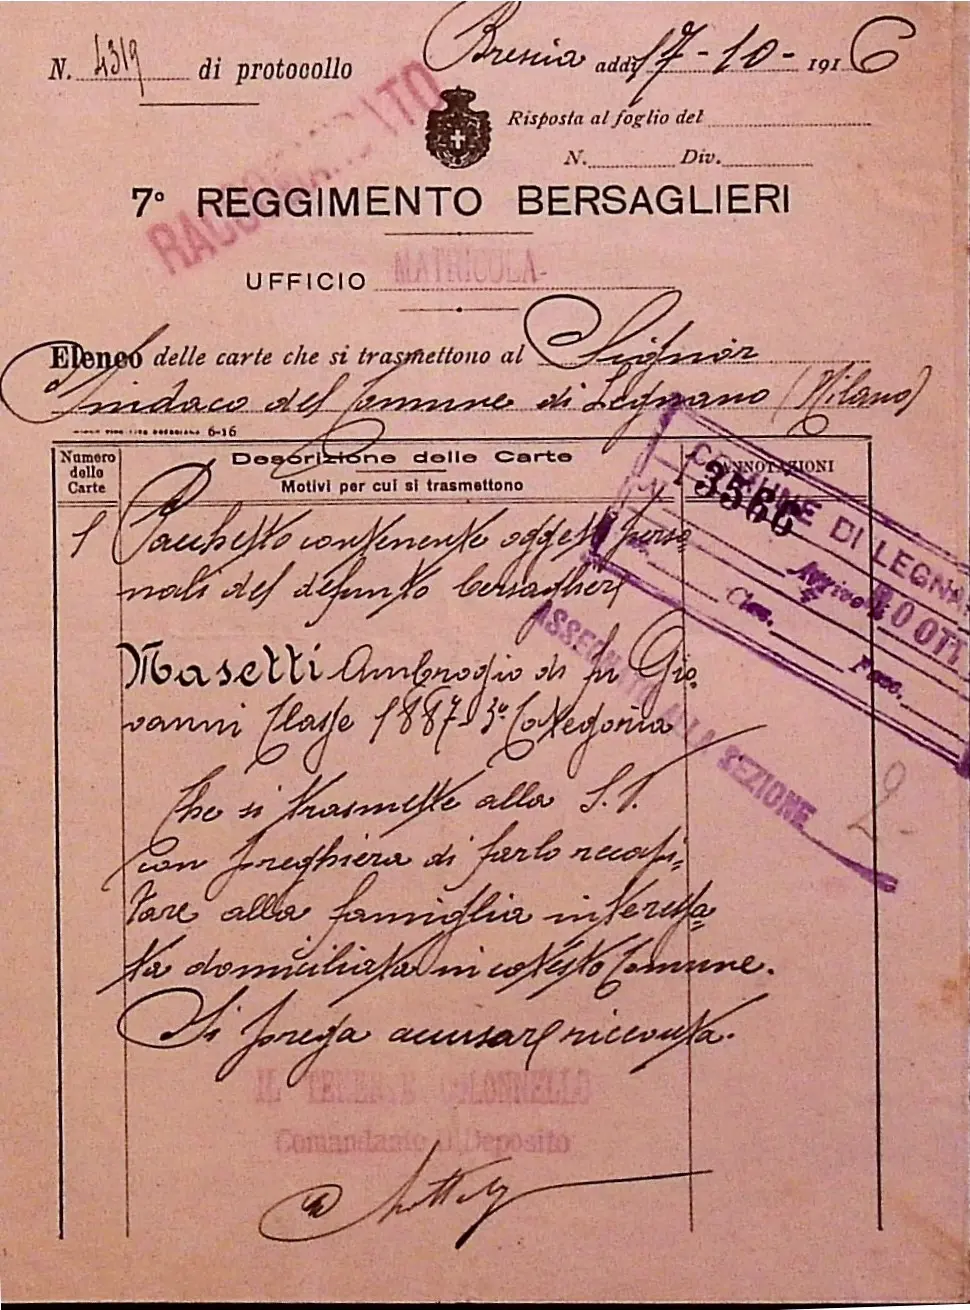 N. 4319 di protocollo
Brescia addì 17-10-1916
RACCOMANDATO
Risposta al foglio del
N. Div.
7º REGGIMENTO BERSAGLIERI
UFFICIO MATRICOLA-
Elenco delle carte che si trasmettono al Signor
Sindaco del Comune di Legnano (Milano)
6-16
Numero delle Carte
Descrizione delle Carte
Motivi per cui si trasmettono
ANNOTAZIONI
COMUNE DI LEGNA
N. 13566
Arrivo 20 OTT
Clas. Fasc.
ASSEGNATO ALLA SEZIONE
2-
1 Pacchetto contenente oggetti perso-
nali del defunto bersaglieri
Masetti Ambrogio di fu Gio-
vanni Classe 1887-3ª Categoria
Che si trasmette alla S.V.
con preghiera di farlo recapi-
tare alla famiglia interessa-
ta domiciliata in cotesto Comune.
Si prega accusare ricevuta.
IL TENENTE COLONNELLO
Comandante il Deposito